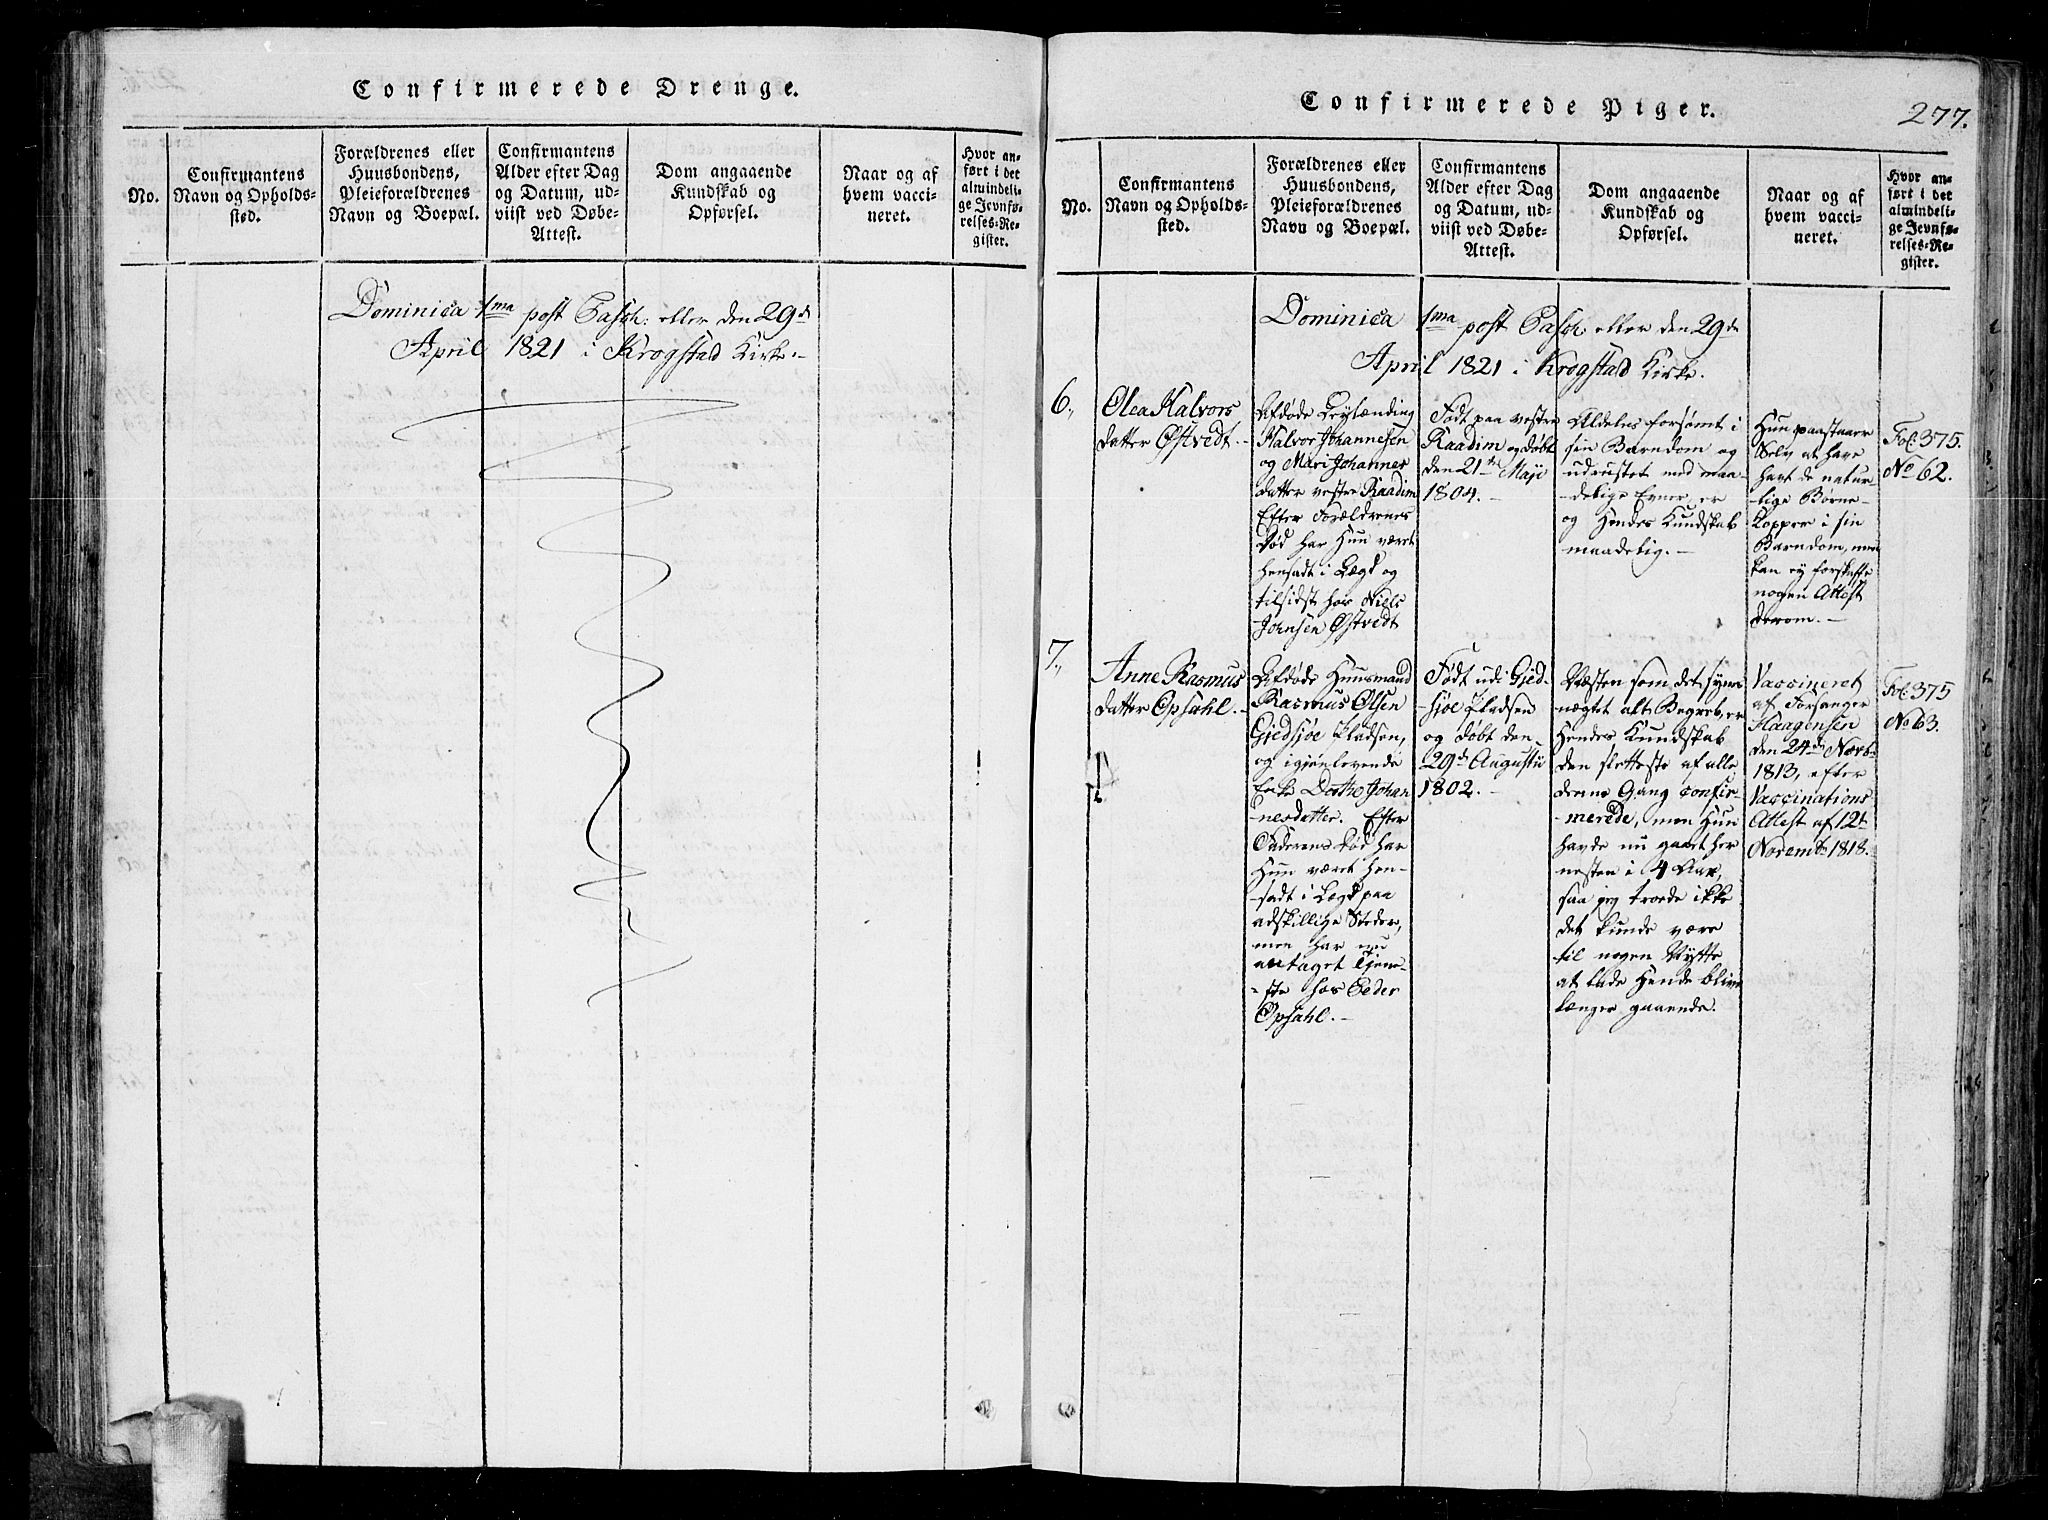 Confirmerede Drenge.
No.
Confirmantens
Navn og Opholds-
sted.
Forældrenes eller
Huusbondens,
Pleieforældrenes
Navn og Boepæl.
Confirmantens
Alder efter Dag
og Datum, ud-
viist ved Døbe-
Attest.
Dom angaaende
Kundskab og
Opførsel.
Naar og af
hvem vacci-
neret.
Hvor an-
ført i det
almindeli-
ge Jevnfø-
relses-Re-
gister.
Dominica 1ma post Pasch: eller den 29de
April 1821 i Krogstad Kirke:-
Confirmerede Piger.
277.
No.
Confirmantens
Navn og Opholds-
sted.
Forældrenes eller
Huusbondens,
Pleieforældrenes
Navn og Boepæl.
Confirmantens
Alder efter Dag
og Datum, ud-
viist ved Døbe-
Attest.
Dom angaaende
Kundskab og
Opførsel.
Naar og af
hvem vacci-
neret.
Hvor an-
ført i det
almindeli-
ge Jevnfø-
relses-Re-
gister.
Dominica 1ma post Pasch eller den 29de
April 1821 i Krogstad Kirke.
6.,
Olea Halvors
datter Østvedt.-
Afdøde Leylænding
Halvor Johannesen
og Mari Johannes
datter vestre Raadim
Efter Forældrenes
Død har Hun været
hensadt i Lægd og
tilsidst hos Niels
Johnsen Østvedt
Født paa vestre
Raadim og døbt
den 21de Maji
1804.-
Aldeles forsømt i
sin Barndom og
udrustet med maa-
-delige Evner, er
og Hendes Kundskab
maadelig.-
Hun paastaar
Selv at have
havt de natur
-lige Børne-
kopper i sin
Barndom, men
kan ej forskaffe
nogen Attest
derom.-
Fol: 375.
No 62.
7.,
Anne Rasmus
datter Opsahl.-
Afdøde Huusmand
Rasmus Olsen
Giedsjøe Pladsen,
og igjenlevende
Enke Dorthe Johan
-nesdatter. Efter
Faderens Død har
Hun været hen-
-sadt i Lægd paa
adskillige Steder,
men har nu
antaget Tjene-
-ste hos Peder
Opsahl.-
Født udi Gied-
-sjøe Pladsen
og døbt den
29de Augustii
1802.-
Næsten som det synes
nægtet alt Begreb, er
Hendes Kundskab
den sletteste af alle
denne Gang confir
-merede, men Hun
havde nu gaaet her
nesten i 4 Aar,
saa jeg troede ikke
det kunde være
til nogen Nytte
at lade Hende blive
længer gaaende.
Vaccineret
af Forsanger
Haagensen
den 24de Novb:
1813, efter
Vaccinations
Attest af 12te
Novembr 1818.
Fol: 375
No 63.